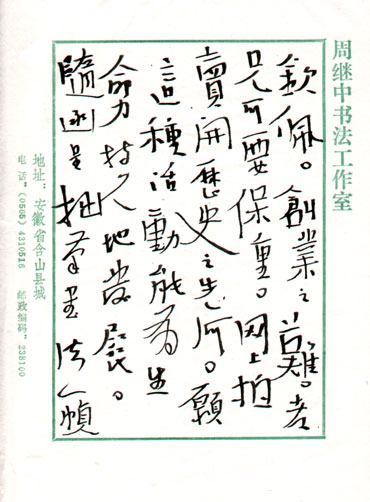 周继中书法工作室
欽佩。創業之難。老
兄可要保重。网上拍
賣開歷史之先河。願
這種活動能有生
命力持久地發展。
隨函呈拙筆書法一幀
地址：安徽省含山县城
电话：(0565) 4310516 邮政编码：238100